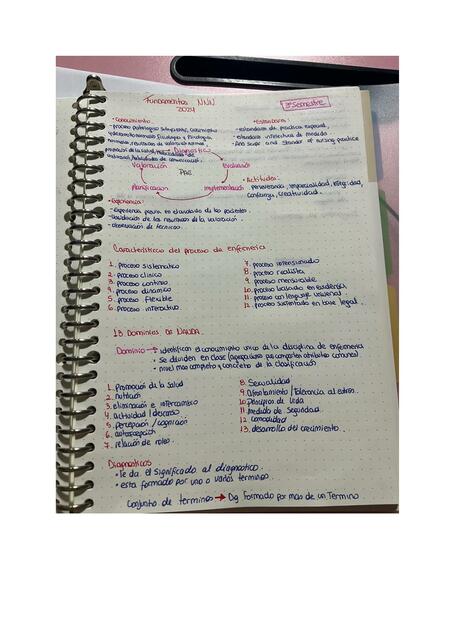 Fundamentos NNN
2024
3º Semestre
Conocimiento
- proceso patologico
normales, resultados de valoración normal,
Diagnostico
Valoración
PAE
Evaluación
Planificación
Implementación
Estandares:
- estandares de practica especial
- ANA Scope and Standar of nursing practice
• Actitudes:
perseverancia, imparcialidad, integridad,
confianza, creatividad.
• Experiencia:
- Experiencia previa en el cuidado de los pacientes.
- Validación de los resultados de la valoración.
- observación de tecnicas.
Caracteristicas del proceso de enfermeria
1. proceso sistematico
2. proceso clinico
3. proceso continuo
4. proceso dinamico
5. proceso flexible
6. proceso interactivo
7. proceso intensionado
8. proceso realista
9. proceso mensurable
10. proceso basado en evidencia
11. proceso con lenguaje universal
12. proceso sustentado en base legal.
13 Dominios de NANDA.
Dominio → • identifican el conocimiento unico de la disciplina de enfermeria
• Se dividen en clase (agrupadores que comparten atributos comunes)
• nivel mas completo y concreto de la clasificación
1. Promoción de la salud
2. nutrición
3. eliminación e intercambio
4. actividad / descanso
5. percepción / cognición
6. autopercepción
7. relación de roles.
8. Sexualidad
9. Afrontamiento / Tolerancia al estres.
10. Principios de vida
11. medida de seguridad
12. comodidad
13. desarrollo del crecimiento.
Diagnosticos
• le da el significado al diagnostico.
• esta formado por uno o varios terminos.
Conjunto de terminos → Dg Formado por mas de un Termino